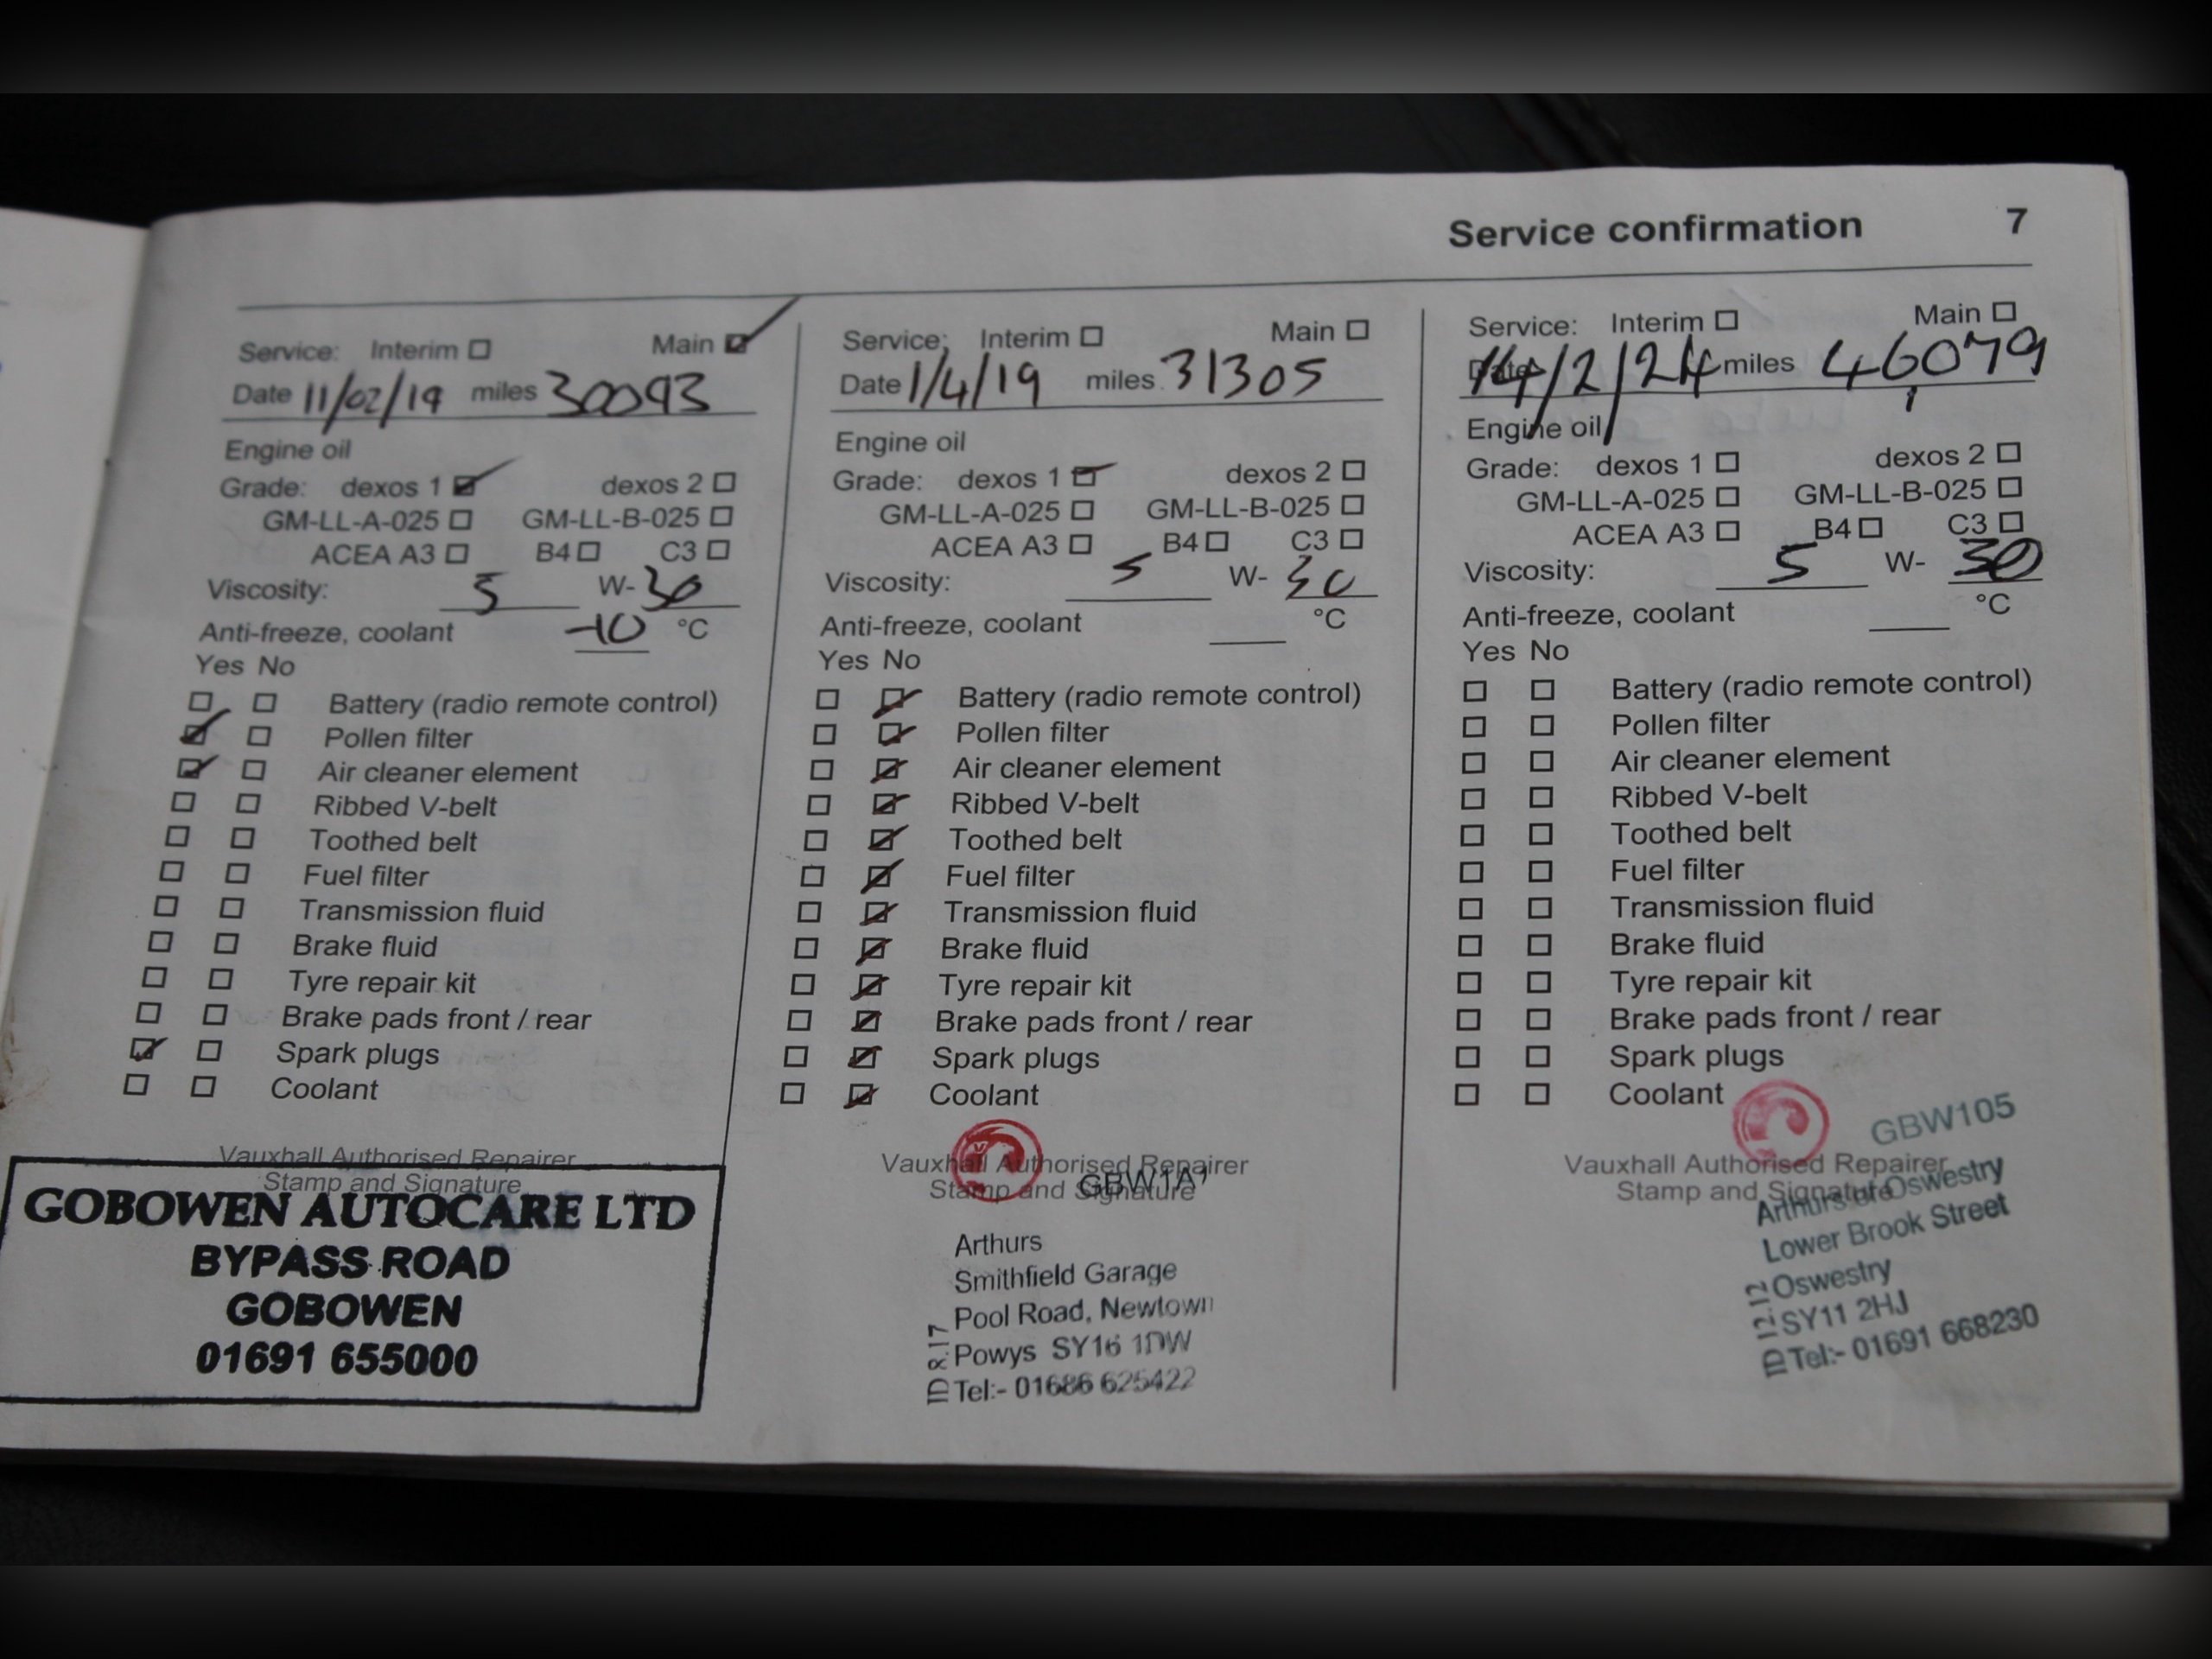 Service confirmation 7
Service: Interim Main
Date 11/02/19 miles 30093
Engine oil
Grade: dexos 1 dexos 2
GM-LL-A-025 GM-LL-B-025
ACEA A3 B4 C3
Viscosity: 5 W- 30
Anti-freeze, coolant -10 °C
Yes No
Battery (radio remote control)
Pollen filter
Air cleaner element
Ribbed V-belt
Toothed belt
Fuel filter
Transmission fluid
Brake fluid
Tyre repair kit
Brake pads front / rear
Spark plugs
Coolant
Vauxhall Authorised Repairer
Stamp and Signature
GOBOWEN AUTOCARE LTD
BYPASS ROAD
GOBOWEN
01691 655000
Service: Interim Main
Date 1/4/19 miles 31305
Engine oil
Grade: dexos 1 dexos 2
GM-LL-A-025 GM-LL-B-025
ACEA A3 B4 C3
Viscosity: 5 W- 30
Anti-freeze, coolant °C
Yes No
Battery (radio remote control)
Pollen filter
Air cleaner element
Ribbed V-belt
Toothed belt
Fuel filter
Transmission fluid
Brake fluid
Tyre repair kit
Brake pads front / rear
Spark plugs
Coolant
Vauxhall Authorised Repairer
Stamp and Signature
Arthurs
Smithfield Garage
Pool Road, Newtown
Powys SY16 1DW
Tel:- 01686 625422
Service: Interim Main
Date 14/2/24 miles 46079
Engine oil
Grade: dexos 1 dexos 2
GM-LL-A-025 GM-LL-B-025
ACEA A3 B4 C3
Viscosity: 5 W- 30
Anti-freeze, coolant °C
Yes No
Battery (radio remote control)
Pollen filter
Air cleaner element
Ribbed V-belt
Toothed belt
Fuel filter
Transmission fluid
Brake fluid
Tyre repair kit
Brake pads front / rear
Spark plugs
Coolant
GBW105
Vauxhall Authorised Repairer
Stamp and Signature
Arthurs of Oswestry
Lower Brook Street
Oswestry
SY11 2HJ
Tel:- 01691 668230